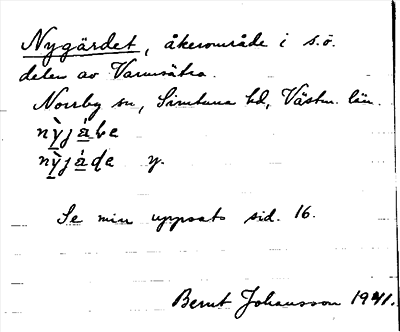 Nygärdet, åkerområde i s.ö.
delen av Varmsätra.
Norrby sn, Simtuna hd, Västm. län.
nỳjàɬe
nỳjàde y.
Se min uppsats sid. 16.
Bernt Johansson 1941.